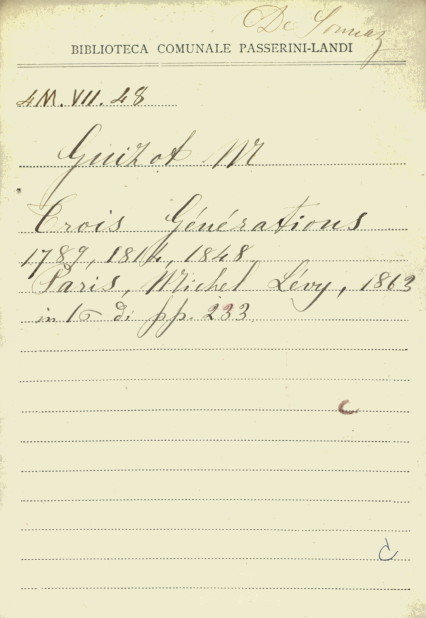 De Sonnaz
BIBLIOTECA COMUNALE PASSERINI-LANDI
4M. VII. 48
Guizot M
Trois Générations
1789, 1814, 1848
Paris, Michel Lévy, 1863
in 16 di pp. 233
c
c